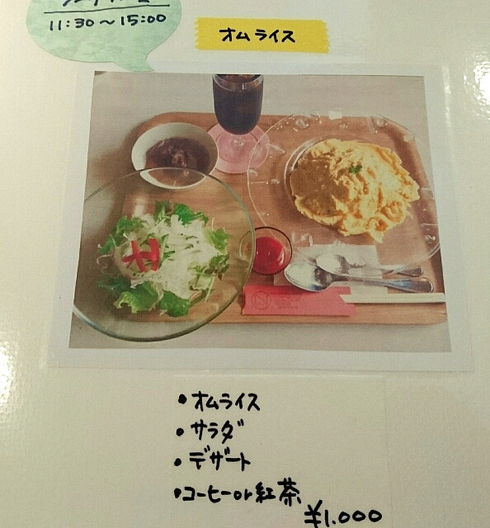 11:30～15:00
オムライス
・オムライス
・サラダ
・デザート
・コーヒーor紅茶
¥1.000